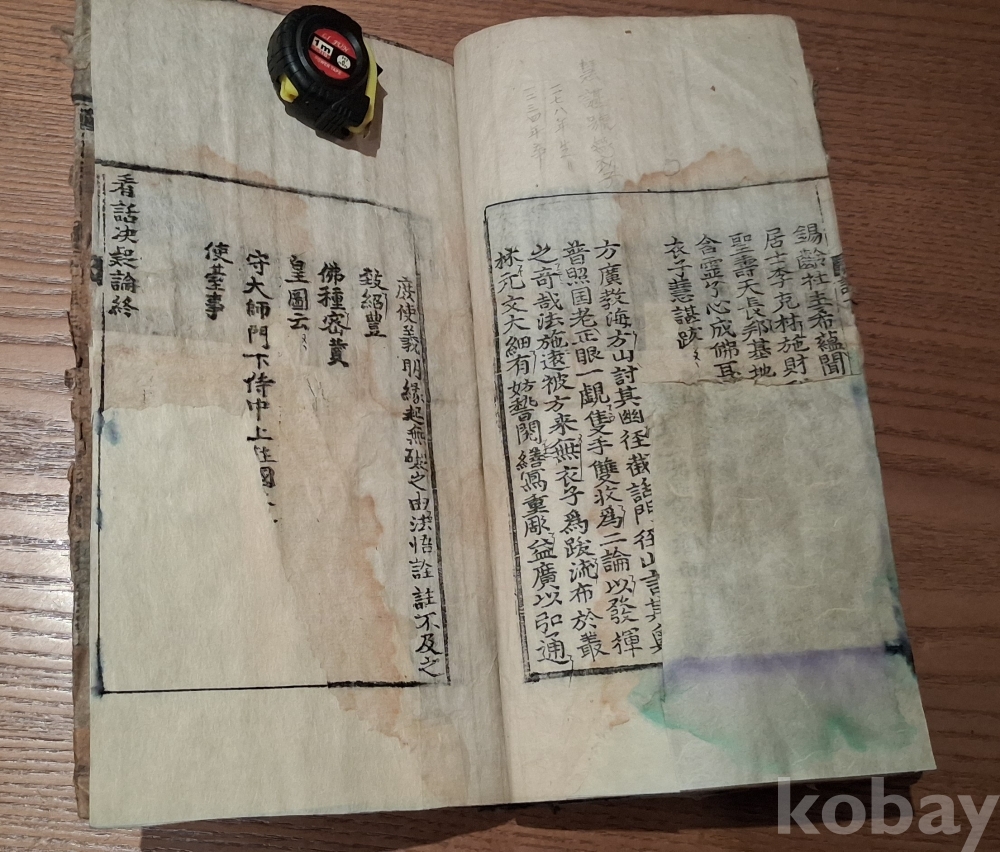 錫齡社主希蘊聞
居士李克材施財
聖壽天長邦基地
含靈了心成佛耳
衣子慧諶跋
方廣教海方山討其幽徑截話門徑山討其奧
普照国老正眼一覷隻手雙收爲二論以發揮
之奇哉法施遠被方來無衣子爲跋流布於叢
林元文大細有妨瞖閱繕寫重彫益廣以弘通
明緣起無碍之由法悟詮註不及之
致絕豊
佛種密賛
皇圖云
守大師門下侍中上柱國
使臺事
看話决疑論終
1m
kobay